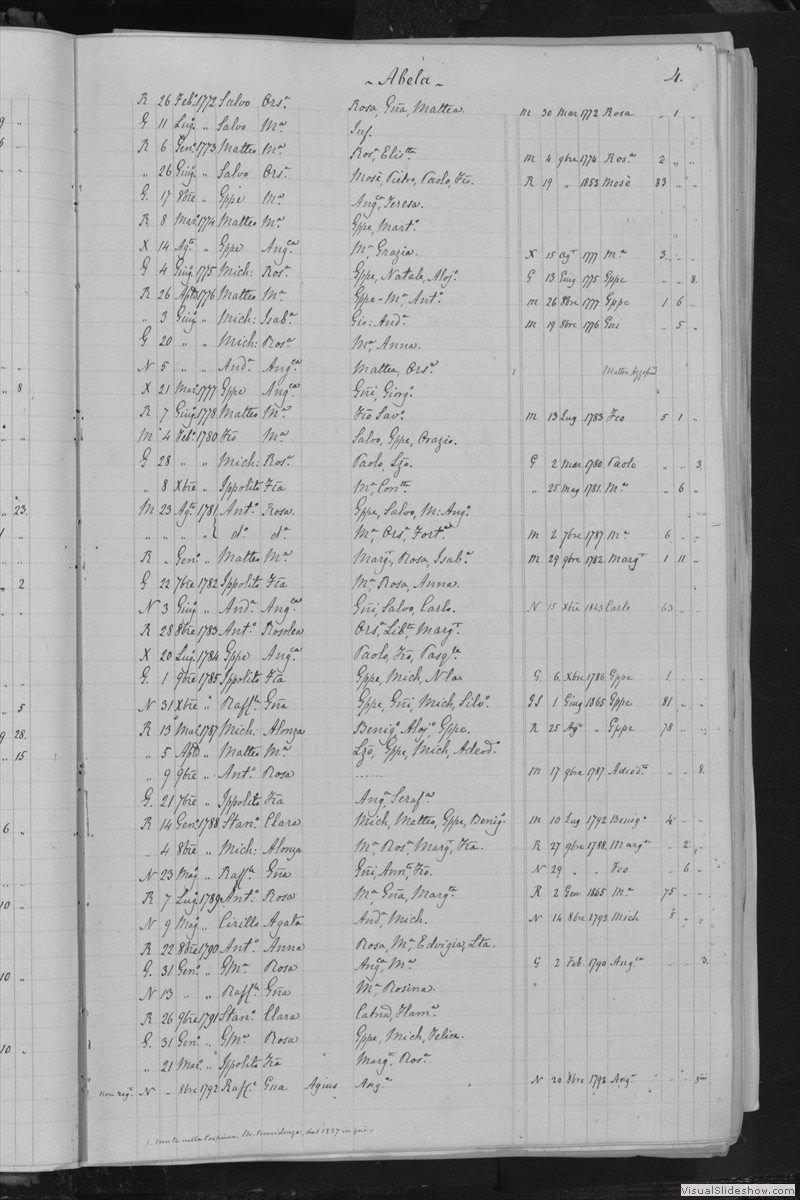 ~ Abela ~ 4.
R 26 Feb.º 1772 Salvo Ors.ª Rosa, Gña, Mattea. M 30 Mar 1772 Rosa " 1 "
G 11 Lug. " Salvo M.ª Inf.
R 6 Gen.º 1773 Matteo M.ª Ros.ª, Elis.tta M 4 9bre 1774 Ros.ª 2 " "
" 26 Giug. " Salvo Ors.ª Mosè, Pietro, Paolo, Fco. R 19 " 1853 Mosè 83 " "
G. 17 8bre " Gppe M.ª Ang.ª, Teresa.
R 8 Mar. 1774 Matteo M.ª Gppe, Mart.º
X 14 Ag.to " Gppe Ang.ca M.ª Grazia. X 15 Ag.t 1777 M.ª 3 " "
G 4 Giug. 1775 Mich: Ros.ª Gppe, Natale, Aloj.º G 13 Giug 1775 Gppe " " 8.
R 26 Aple 1776 Matteo M.ª Gppe-M.ª, Ant.º M 26 8bre 1777 Gppe 1 6 "
" 3 Giug. " Mich: Isab.ª Gio: And.ª M 19 8bre 1776 Gni " 5 "
G 20 " " Mich: Rosa M.ª, Anna.
N 5 " " And.ª Ang.ca Mattea, Ors.ª 1 Mattea Azzopard
X 21 Mar. 1777 Gppe Ang.ca Gñi, Giorg.º
R 7 Giug. 1778 Matteo M.ª Fco Sav.º M 13 Lug 1783 Fco 5 1 "
M 4 Feb.º 1780 Fco M.ª Salvo, Gppe, Orazio.
G 28 " " Mich: Ros.ª Paolo, Lzo. G 2 Mar 1780 Paolo " " 3.
" 8 Xbre " Ippolito Fca M.ª, Con.tta " 25 Mag 1781 M.ª " 6 "
M 23 Ag.to 1781 Ant.º Rosa. Gppe, Salvo, M: Ang.º
" " " " d.º d.ª M.ª, Ors.ª, Fort.ª M 2 7bre 1787 M.ª 6 " 5
R " Gen.º " Matteo M.ª Marg.ª, Rosa, Isab.ª M 29 9bre 1782 Marg.ª 1 11 "
G 22 7bre 1782 Ippolito Fca M.ª, Rosa, Anna.
N 3 Giug " And.ª Ang.ca Gñi, Salvo, Carlo. N 15 Xbre 1843 Carlo 63 " "
R 28 8bre 1783 Ant.º Rosolea Ors.ª, Lib.ta, Marg.ª
X 20 Lug. 1784 Gppe Ang.ca Paolo, Fco, Pasq.le
G. 1 9bre 1785 Ippolito Fca Gppe, Mich, Nlao G 6 Xbre 1786 Gppe 1 " "
N 31 Xbre " Raff.le Gña Gppe, Gñi, Mich, Silv.º GS 1 Giug 1865 Gppe 81 " "
R 13 Mar. 1787 Mich: Alonza Benig.º, Aloj.º, Gppe. R 25 Ag.t " Gppe 78 " "
" 5 Aple " Matteo M.ª Lzo, Gppe, Mich, Adeod.º
" 9 9bre " Ant.º Rosa ...... M 17 9bre 1787 Adeod.º " " 8.
G. 21 7bre " Ippolito Fca Ang.ª, Seraf.ª
R 14 Gen.º 1788 Stan.º Clara Mich, Matteo, Gppe, Benig.º M 10 Lug 1792 Benig.º 4 " "
" 4 8bre " Mich: Alonza M.ª Ros.ª Marg, Fca. R 27 9bre 1788 Marg.ª " 2 "
N 23 Mag " Raff.le Gña Gñi, Ann.to, Fco. N 29 " " Fco " 6 "
R 7 Lug. 1789 Ant.º Rosa M.ª, Gña, Marg.ta R 2 Gen 1865 M.ª 75 " "
N 9 Mag. " Cirillo Agata And.ª, Mich. N 14 8bre 1793 Mich 5 " "
R 22 8bre 1790 Ant.º Anna Rosa, M.ª, Edvigia, Lta.
G. 31 Gen.º " G/M.ª Rosa Ang.ca, M.ª G 2 Feb. 1790 Ang.ca " " 2.
N 13 " " Raff.le Gña M.ª, Rosina.
R 26 9bre 1791 Stan.º Clara Catnª,
G. 31 Gen.º " G/M.ª Rosa Gppe, Mich, Felice.
" 21 Mar. " Ippolito Fca Marg.ª, Ros.ª
non reg.º N " 8bre 1792 Raff.le Gna Agius Ang.ª N 20 8bre 1792 Ang.ª
1. Morta nella Cospicua, Provvidenza, dal 1827 in quà
VisualSlideshow.com